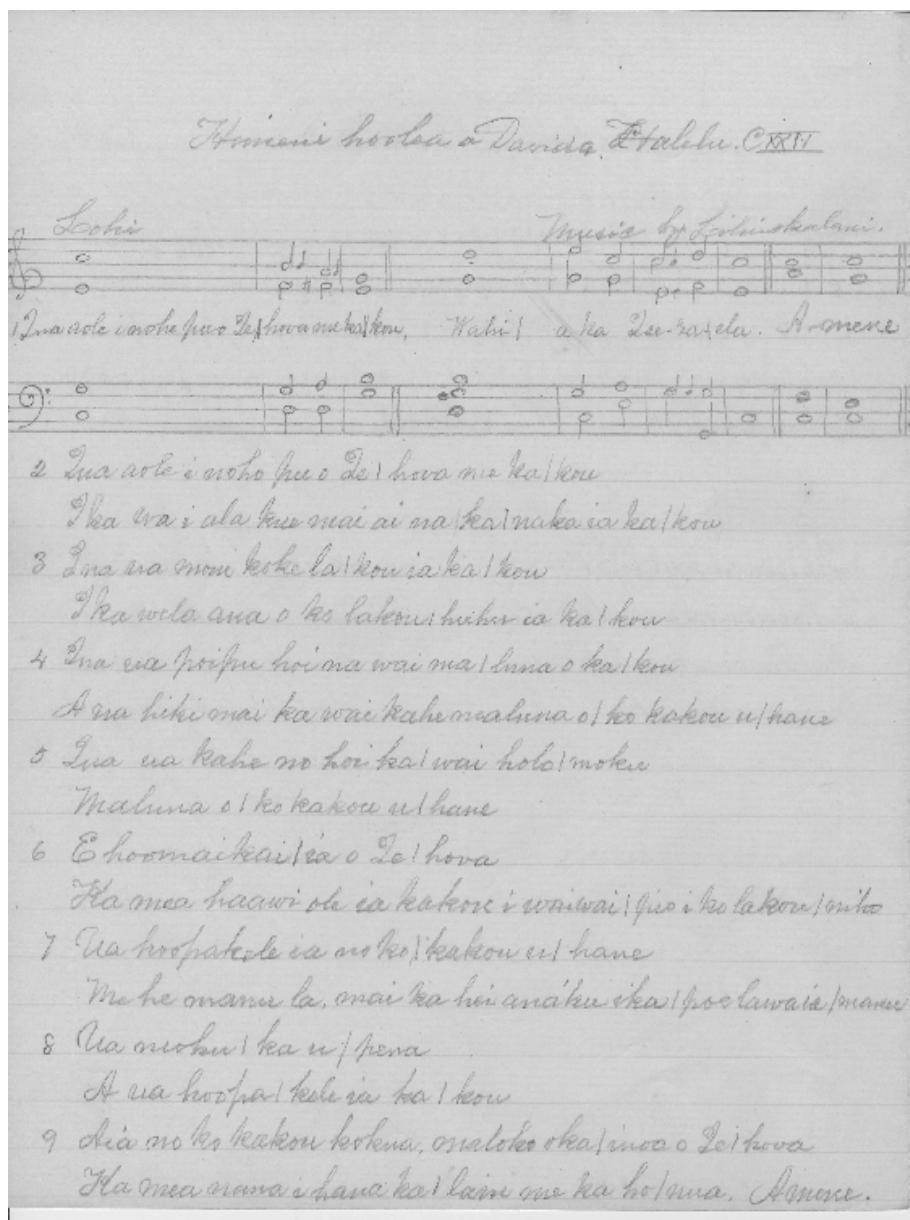 Himeni hoolea a Davida. Halelu. CXXIV
Lohi
Music by Liliuokalani.
1 Ina aole i noho pu o Ie|hova me ka|kou, Wahi| a ka Ise-ra|ela. A-mene
2 Ina aole i noho pu o Ie|hova me ka|kou
I ka wa i ala kue mai ai na|ka|naka ia ka|kou
3 Ina ua moni koke la|kou ia ka|kou
I ka wela ana o ko lakou|huhu ia ka|kou
4 Ina ua poipu hoi na wai ma|luna o ka|kou
A ua hiki mai ka wai kahe maluna o|ko kakou u|hane
5 Ina ua kahe no hoi ka|wai holo|moku
Maluna o|ko kakou u|hane
6 E hoomaikai|ia o Ie|hova
Ka mea haawi ole ia kakou i waiwai|pio i ko lakou|niho
7 Ua hoopakele ia no ko|kakou u|hane
Me he manu la, mai ka hei anáku i ka|poe lawaia|manu
8 Ua moku|ka u|pena
A ua hoopa|kele ia ka|kou
9 Aia no ko kakou kokua, maloko o ka|inoa o Ie|hova
Ka mea nana i hana ka|lani me ka ho|nua. Amene.